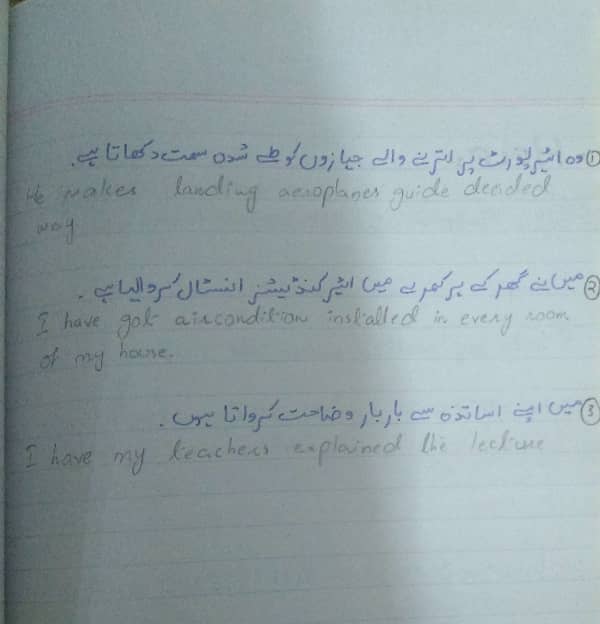 ① وہ ائیرپورٹ پر اترنے والے جہازوں کو طے شدہ سمت دکھاتا ہے۔
He makes landing aeroplanes guide decided
way
② میں نے گھر کے ہر کمرے میں ائیر کنڈیشنز انسٹال کروا لیا ہے۔
I have got aircondition installed in every room
of my house.
③ میں اپنے اساتذہ سے بار بار وضاحت کرواتا ہوں۔
I have my teachers explained the lecture